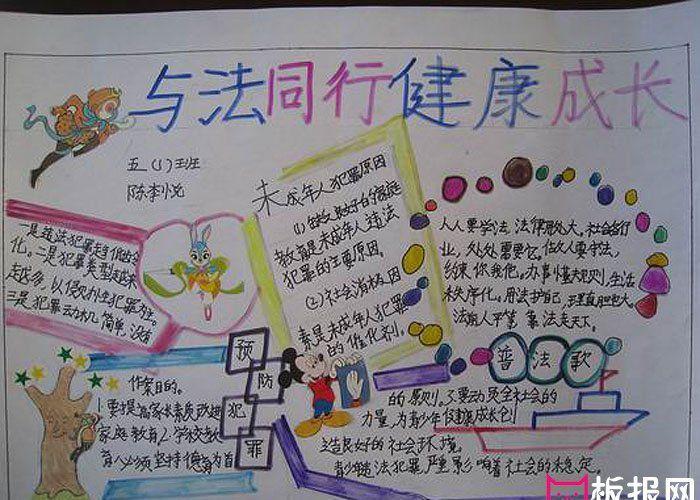 与法同行健康成长
五(1)班
陈李小兑
一是违法犯罪走向低龄
化。二是犯罪类型越来
越多,以侵财性犯罪为主。
三是犯罪动机简单,没有
作案目的。
未成年人犯罪原因
(1)缺乏良好的家庭
教育是未成年人违法
犯罪的主要原因。
(2)社会消极因
素是未成年人犯罪
的催化剂。
人人要学法,法律
社会各行
业,处处需要它。做人要守法,
约束你我他。办事懂规则,生活
秩序化。用法护自己,理直胆也大。
法前人平等,靠法走天下。
普法歌
预防犯罪
1.要提高家长素质改进
家庭教育2.学校教
育必须坚持德育为首
的原则。3.要动员全社会的
力量,为青少年健康成长创
造良好的社会环境。
青少年违法犯罪严重影响着社会的稳定。
板报网